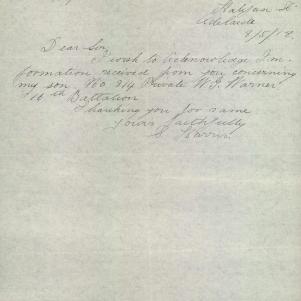 Halifax St
Adelaide
8/5/18.
Dear Sir,
I wish to acknowledge In-
formation received from you concerning
my son No 314 Private W. J. Warner
16th Battalion
Thanking you for same
Yours faithfully
S Warner